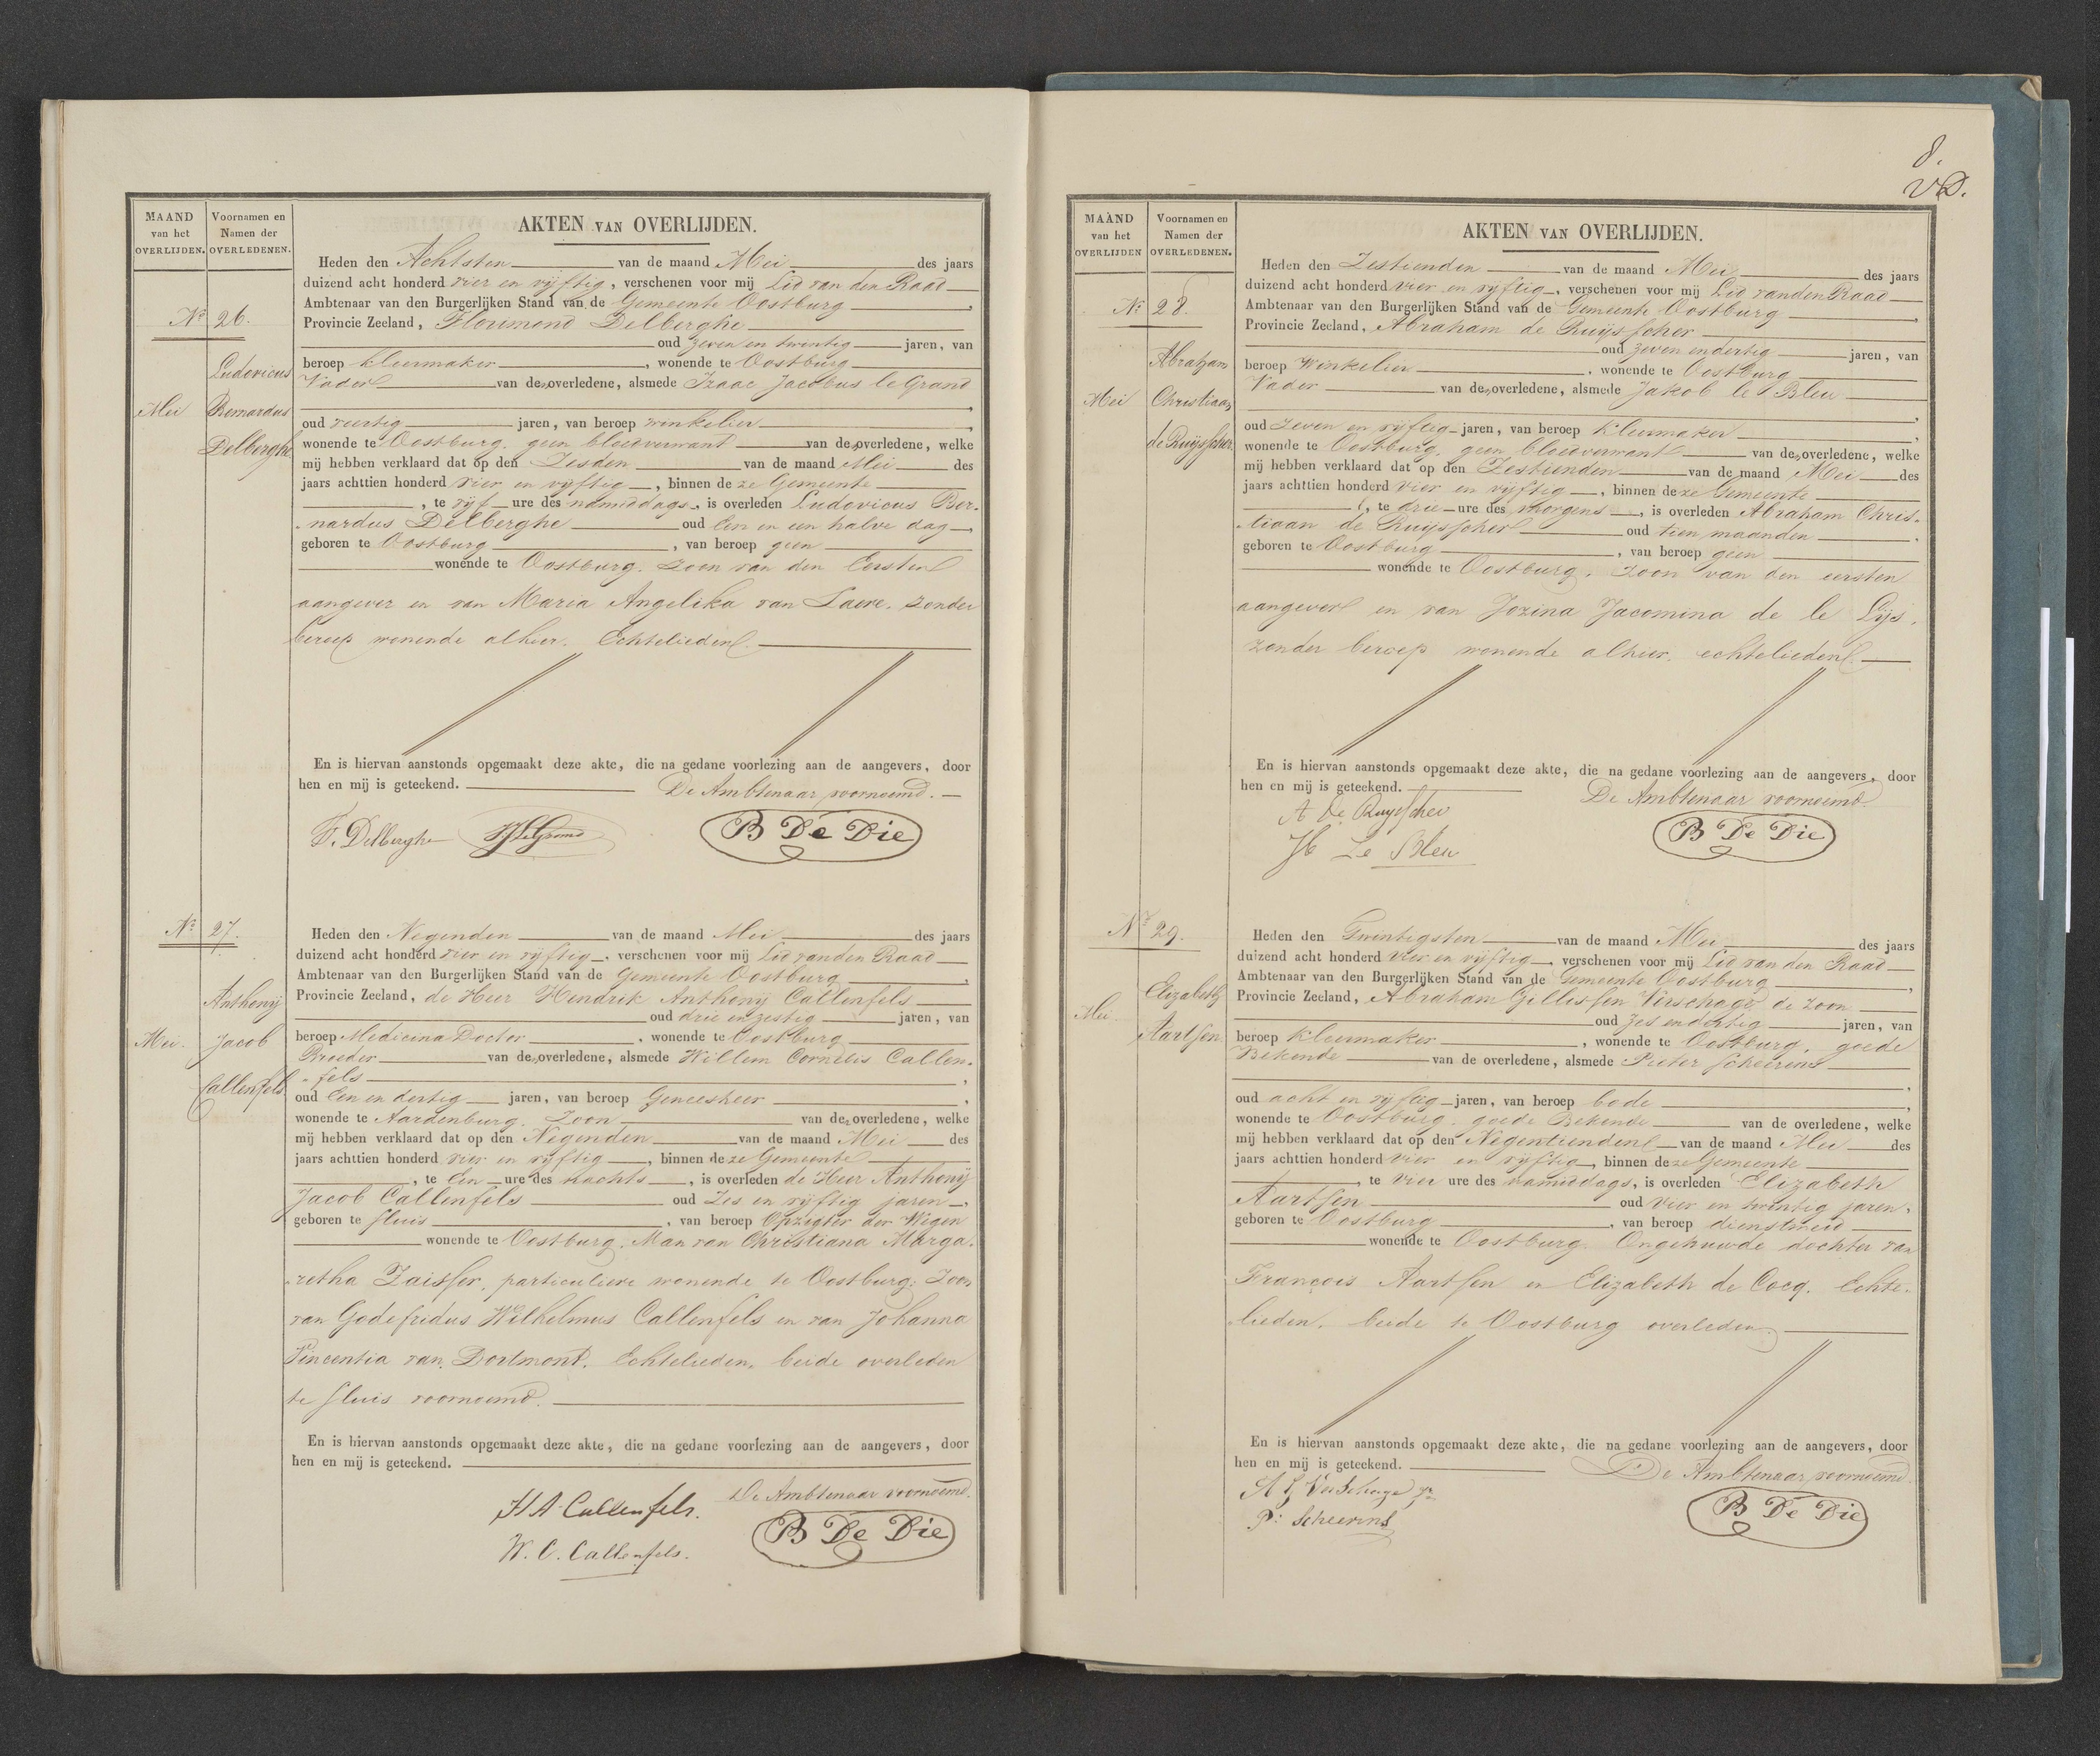 MAAND
van het
OVERLIJDEN.
Voornamen en
Namen der
OVERLEDENEN.
AKTEN VAN OVERLIJDEN.
Nº 26.
Mei
Ludovicus
Bernardus
Delberghe
Heden den Achtsten van de maand Mei des jaars
duizend acht honderd vier en vijftig, verschenen voor mij Lid van den Raad
Ambtenaar van den Burgerlijken Stand van de Gemeente Oostburg,
Provincie Zeeland, Florimond Delberghe
oud zeven en twintig jaren, van
beroep kleermaker, wonende te Oostburg
Vader van den overledene, alsmede Izaac Jacobus le Grand,
oud veertig jaren, van beroep winkelier,
wonende te Oostburg. geen bloedverwant van den overledene, welke
mij hebben verklaard dat op den Zesden van de maand Mei des
jaars achttien honderd vier en vijftig, binnen deze Gemeente
, te vijf ure des namiddags, is overleden Ludovicus Ber-
nardus Delberghe oud Een en een halve dag,
geboren te Oostburg, van beroep geen
wonende te Oostburg. Zoon van den Eersten
aangever en van Maria Angelika van Laere. zonder
beroep wonende alhier. Echtelieden.
En is hiervan aanstonds opgemaakt deze akte, die na gedane voorlezing aan de aangevers, door
hen en mij is geteekend. De Ambtenaar voornoemd.
F. Delberghe IJLeGrand B De Die
Nº 27.
Mei.
Anthonij
Jacob
Callenfels.
Heden den Negenden van de maand Mei des jaars
duizend acht honderd vier en vijftig, verschenen voor mij Lid van den Raad
Ambtenaar van den Burgerlijken Stand van de Gemeente Oostburg,
Provincie Zeeland, de Heer Hendrik Anthonij Callenfels
oud drie en zestig jaren, van
beroep Medicina Doctor, wonende te Oostburg
Broeder van den overledene, alsmede Willem Cornelis Callen-
fels,
oud Een en dertig jaren, van beroep Geneesheer,
wonende te Aardenburg. Zoon van den overledene, welke
mij hebben verklaard dat op den Negenden van de maand Mei des
jaars achttien honderd vier en vijftig, binnen deze Gemeente
, te Een ure des nachts, is overleden de Heer Anthonij
Jacob Callenfels oud Zes en vijftig jaren,
geboren te Sluis, van beroep Opzigter der Wegen
wonende te Oostburg. Man van Christiana Marga-
retha Zaisser, particuliere wonende te Oostburg: Zoon
van Godefridus Wilhelmus Callenfels en van Johanna
Vincentia van Dortmont. Echtelieden. beide overleden
te Sluis voornoemd.
En is hiervan aanstonds opgemaakt deze akte, die na gedane voorlezing aan de aangevers, door
hen en mij is geteekend.
De Ambtenaar voornoemd.
H A Callenfels.
W. C. Callenfels. B De Die
8.
MAAND
van het
OVERLIJDEN
Voornamen en
Namen der
OVERLEDENEN.
AKTEN VAN OVERLIJDEN.
Nº 28.
Mei
Abraham
Christiaan
de Ruijsscher
Heden den Zestienden van de maand Mei des jaars
duizend acht honderd vier en vijftig, verschenen voor mij Lid van den Raad
Ambtenaar van den Burgerlijken Stand van de Gemeente Oostburg,
Provincie Zeeland, Abraham de Ruijsscher
oud zeven en dertig jaren, van
beroep Winkelier, wonende te Oostburg
Vader van den overledene, alsmede Jakob le Bleu,
oud Zeven en vijftig jaren, van beroep Kleermaker,
wonende te Oostburg. geen bloedverwant van den overledene, welke
mij hebben verklaard dat op den Zestienden van de maand Mei des
jaars achttien honderd vier en vijftig, binnen deze Gemeente
, te drie ure des morgens, is overleden Abraham Chris-
tiaan de Ruijsscher oud tien maanden,
geboren te Oostburg, van beroep geen
wonende te Oostburg. Zoon van den eersten
aangever en van Jozina Jacomina de le Lijs.
zonder beroep wonende alhier. echtelieden.
En is hiervan aanstonds opgemaakt deze akte, die na gedane voorlezing aan de aangevers, door
hen en mij is geteekend. De Ambtenaar voornoemd.
A De Ruysscher
Jb Le Bleu B De Die
Nº 29.
Mei.
Elizabeth
Aartsen.
Heden den Twintigsten van de maand Mei des jaars
duizend acht honderd vier en vijftig, verschenen voor mij Lid van den Raad
Ambtenaar van den Burgerlijken Stand van de Gemeente Oostburg,
Provincie Zeeland, Abraham Gillissen Verschage de Zoon
oud Zes en dertig jaren, van
beroep Kleermaker, wonende te Oostburg. goede
Bekende van de overledene, alsmede Pieter Scheerens,
oud acht en vijftig jaren, van beroep bode,
wonende te Oostburg. goede Bekende van de overledene, welke
mij hebben verklaard dat op den Negentienden van de maand Mei des
jaars achttien honderd vier en vijftig, binnen deze Gemeente
, te vier ure des namiddags, is overleden Elizabeth
Aartsen oud vier en twintig jaren,
geboren te Oostburg, van beroep dienstmeid
wonende te Oostburg. Ongehuwde dochter van
François Aartsen en Elizabeth de Cocq. Echte-
lieden. beide te Oostburg overleden.
En is hiervan aanstonds opgemaakt deze akte, die na gedane voorlezing aan de aangevers, door
hen en mij is geteekend. De Ambtenaar voornoemd.
A G Verschage Jr
P: Scheerens B De Die